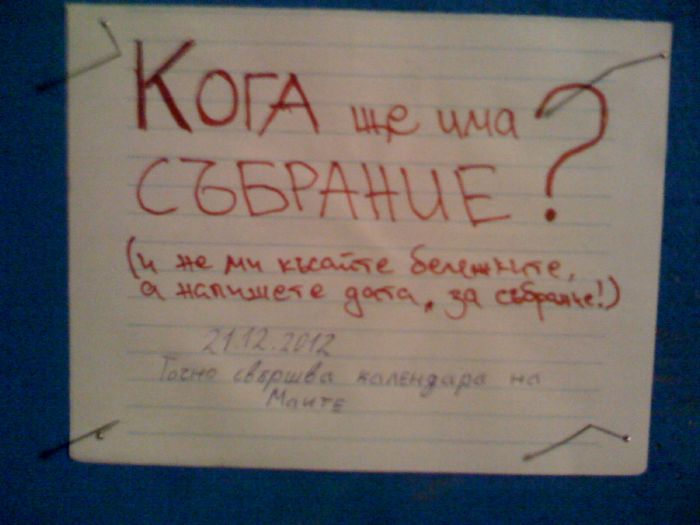 КОГА ще има
СЪБРАНИЕ?
(и не ми късайте бележките,
а напишете дата, за събрание!)
21.12.2012
Точно свършва календара на
Маите